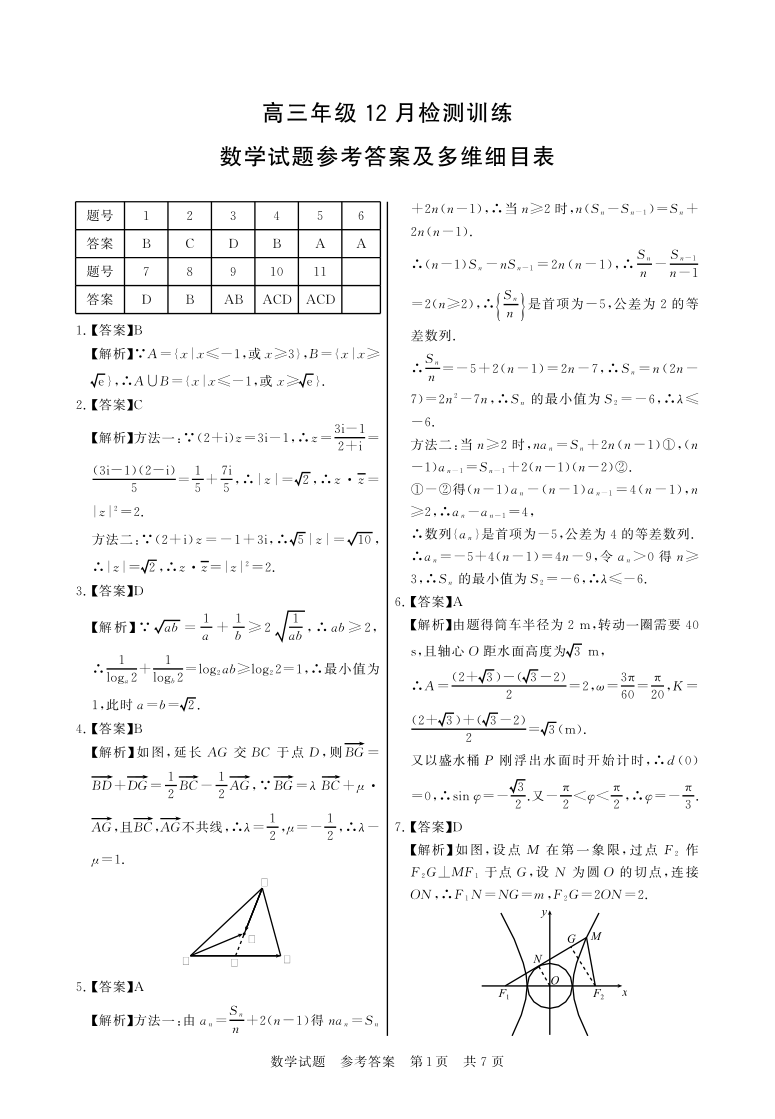 高三年级 12 月检测训练
数学试题参考答案及多维细目表
题号 1 2 3 4 5 6
答案 B C D B A A
题号 7 8 9 10 11
答案 D B AB ACD ACD
1.【答案】B
【解析】∵A={x|x≤-1,或x≥3},B={x|x≥
√e},∴A∪B={x|x≤-1,或x≥√e}.
2.【答案】C
【解析】方法一:∵(2+i)z=3i-1,∴z=(3i-1)/(2+i)=
(3i-1)(2-i)/5=1/5+7i/5,∴|z|=√2,∴z·z̅=
|z|²=2.
方法二:∵(2+i)z=-1+3i,∴√5|z|=√10,
∴|z|=√2,∴z·z̅=|z|²=2.
3.【答案】D
【解析】∵√ab=1/a+1/b≥2√(1/ab),∴ab≥2,
∴1/logₐ2+1/log_b2=log₂ab≥log₂2=1,∴最小值为
1,此时a=b=√2.
4.【答案】B
【解析】如图,延长 AG 交 BC 于点 D,则BG→=
BD→+DG→=1/2BC→-1/2AG→,∵BG→=λBC→+μ·
AG→,且BC→,AG→不共线,∴λ=1/2,μ=-1/2,∴λ-
μ=1.
5.【答案】A
【解析】方法一:由aₙ=Sₙ/n+2(n-1)得naₙ=Sₙ
+2n(n-1),∴当n≥2时,n(Sₙ-Sₙ₋₁)=Sₙ+
2n(n-1).
∴(n-1)Sₙ-nSₙ₋₁=2n(n-1),∴Sₙ/n-Sₙ₋₁/(n-1)
=2(n≥2),∴{Sₙ/n}是首项为-5,公差为2的等
差数列.
∴Sₙ/n=-5+2(n-1)=2n-7,∴Sₙ=n(2n-
7)=2n²-7n,∴Sₙ的最小值为S₂=-6,∴λ≤
-6.
方法二:当n≥2时,naₙ=Sₙ+2n(n-1)①,(n
-1)aₙ₋₁=Sₙ₋₁+2(n-1)(n-2)②.
①-②得(n-1)aₙ-(n-1)aₙ₋₁=4(n-1),n
≥2,∴aₙ-aₙ₋₁=4,
∴数列{aₙ}是首项为-5,公差为4的等差数列.
∴aₙ=-5+4(n-1)=4n-9,令aₙ>0得n≥
3,∴Sₙ的最小值为S₂=-6,∴λ≤-6.
6.【答案】A
【解析】由题得筒车半径为2 m,转动一圈需要40
s,且轴心O距水面高度为√3 m,
∴A=((2+√3)-(√3-2))/2=2,ω=3π/60=π/20,K=
((2+√3)+(√3-2))/2=√3(m).
又以盛水桶P刚浮出水面时开始计时,∴d(0)
=0,∴sin φ=-√3/2.又-π/2<φ<π/2,∴φ=-π/3.
7.【答案】D
【解析】如图,设点 M 在第一象限,过点 F₂ 作
F₂G⊥MF₁于点G,设N为圆O的切点,连接
ON,∴F₁N=NG=m,F₂G=2ON=2.
y
G M
N
O
F₁ F₂ x
数学试题 参考答案 第1页 共7页